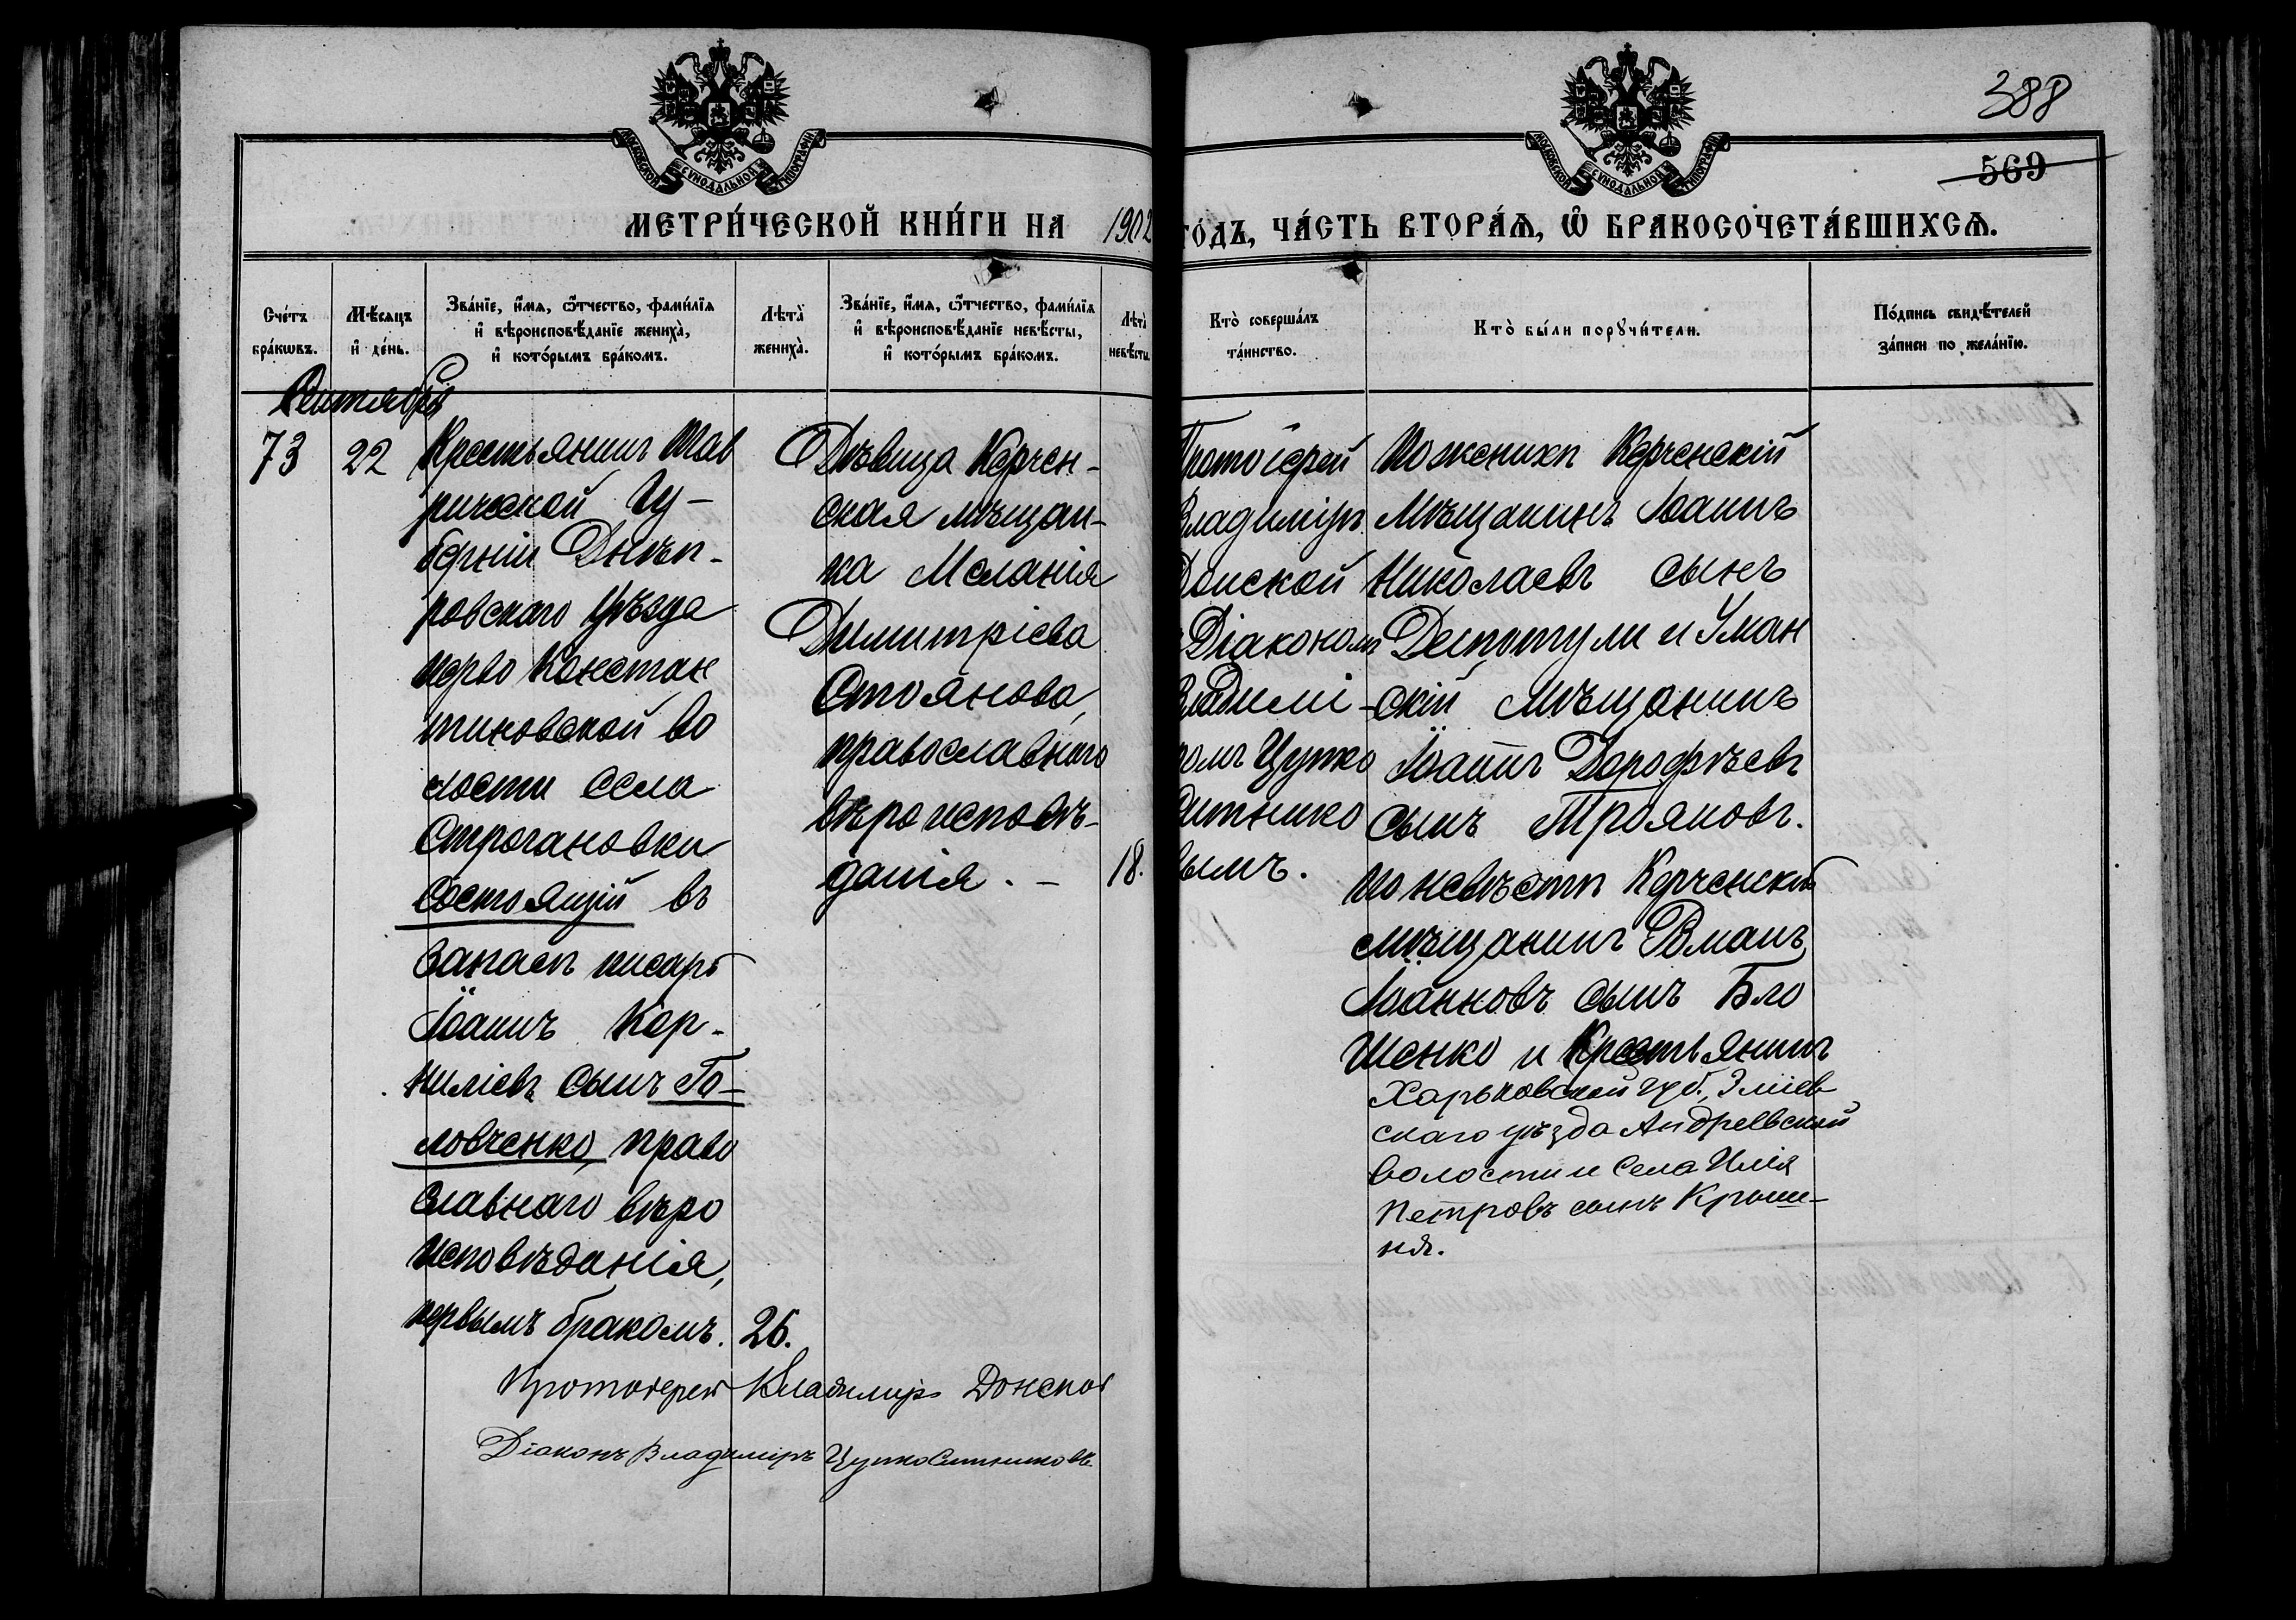 388
569
МОСКОВСКОЙ СѴНОДАЛЬНОЙ ТИПОГРАФІИ
МОСКОВСКОЙ СѴНОДАЛЬНОЙ ТИПОГРАФІИ
МЕТРИ́ЧЕСКОЙ КНИ́ГИ НА 1902 ГО́ДЪ, ЧА́СТЬ ВТОРА́Ѧ, Ѽ БРАКОСОЧЕТА́ВШИХСѦ.
Сче́тъ
бра́кѡвъ.
Мѣ́сяцъ
и҆ де́нь.
Зва́нїе, и҆́мѧ, ѻ҆́тчество, фами́лїѧ
и҆ вѣроисповѣ́данїе жениха̀,
и҆ кото́рымъ бра́комъ.
Лѣта̀
жениха̀.
Зва́нїе, и҆́мѧ, ѻ҆́тчество, фами́лїѧ
и҆ вѣроисповѣ́данїе невѣ́сты,
и҆ кото́рымъ бра́комъ.
Лѣта̀
невѣ́сты.
Кто̀ соверша́лъ
та́инство.
Кто̀ бы́ли порꙋчи́тели.
По́дпись свидѣ́телей
за́писи по жела́нїю.
Сентябрь
73
22
Крестьянинъ Тав
рической Гу-
берніи Днѣп-
ровскаго уѣзда
перво Констан
тиновской во
лости села
Строгановки
состоящій въ
запасѣ писарь
Іоаннъ Кор-
ниліевъ сынъ Го-
ловченко, право
славнаго вѣро
исповѣданія,
первымъ бракомъ.
26.
Дѣвица Керчен-
ская мѣщан-
ка Меланія
Димитріева
Стоянова,
православнаго
вѣроисповѣ-
данія. -
18.
Протоіерей
Владиміръ
Донской
Діакономъ
Владимі-
ромъ Цупко
Ситнико
вымъ.
По женихѣ Керченскій
Мѣщанинъ Іоаннъ
Николаевъ сынъ
Деспотули и Уман
скій мѣщанинъ
Іоаннъ Дорофѣевъ
сынъ Трояновъ.
по невѣстѣ Керченскій
мѣщанинъ Романъ
Іоанновъ сынъ Бло
шенко и Крестьянинъ
Харьковской губ., Зміев
скаго уѣзда Андреевской
волости и села Илія
Петровъ сынъ Крыш-
ня.
Протоіерей Владиміръ Донской
Діаконъ Владиміръ Цупко Ситниковъ.